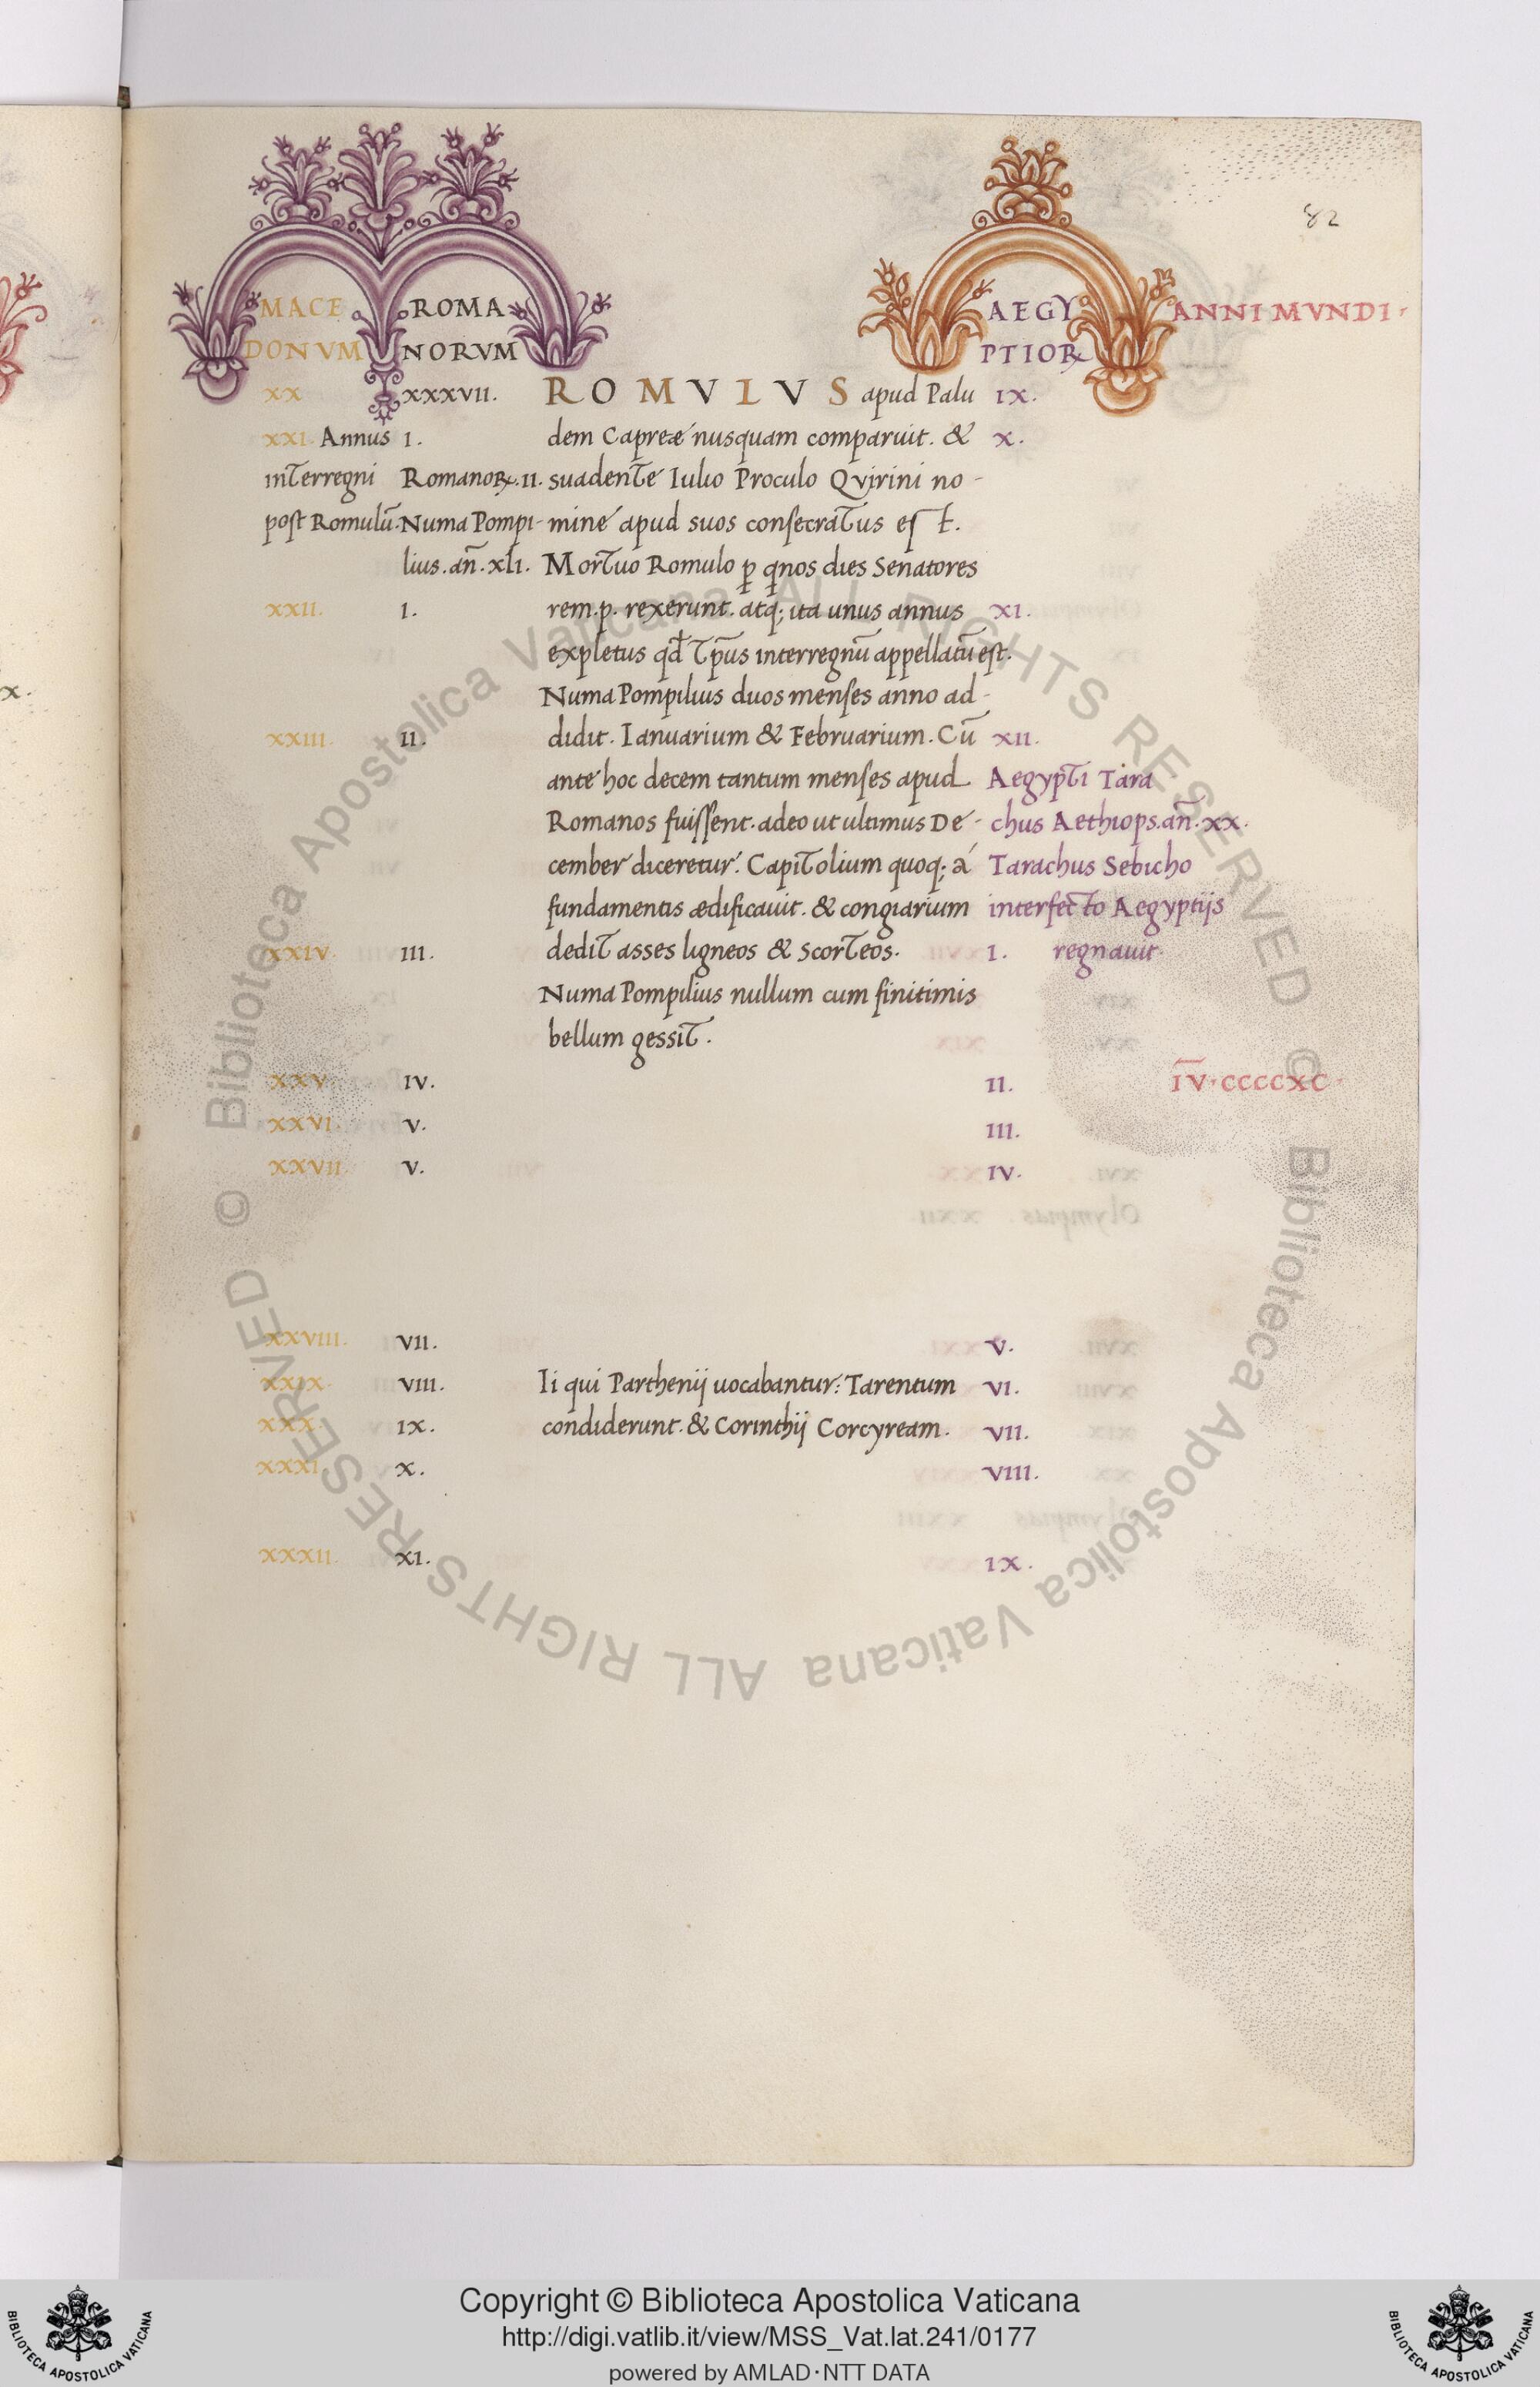 82
MACE ROMA AEGY ANNI MVNDI
DONVM NORVM PTIOꝜ
XX XXXVII. ROMVLVS apud Palu IX.
XXI. Annus I. dem Capreæ nusquam comparuit. & X.
interregni Romanoꝝ.II. suadente Iulio Proculo Qvirini no-
post Romulū. Numa Pompi- mine apud suos consecratus est.
lius.añ.xli. Mortuo Romulo ꝑ qnos dies Senatores
XXII. I. rem.p. rexerunt. atq; ita unus annus XI.
expletus qd tp̄us interregnū appellatū est.
Numa Pompilius duos menses anno ad-
XXIII. II. didit. Ianuarium & Februarium. Cū XII.
ante hoc decem tantum menses apud Aegypti Tara
Romanos fuissent. adeo ut ultimus De- chus Aethiops.añ.XX.
cember diceretur. Capitolium quoq; á Tarachus Sebicho
fundamentis ædificauit. & congiarium interfecto Aegyptijs
XXIV. III. dedit asses ligneos & scorteos. I. regnauit.
Numa Pompilius nullum cum finitimis
bellum gessit.
XXV. IV. II. I̅V̅.CCCCXC.
XXVI. V. III.
XXVII. V. IV.
XXVIII. VII. V.
XXIX. VIII. Ii qui Parthenij uocabantur: Tarentum VI.
XXX. IX. condiderunt. & Corinthij Corcyream. VII.
XXXI. X. VIII.
XXXII. XI. IX.
© Biblioteca Apostolica Vaticana ALL RIGHTS RESERVED © Biblioteca Apostolica Vaticana ALL RIGHTS RESERVED
BIBLIOTECA APOSTOLICA VATICANA
Copyright © Biblioteca Apostolica Vaticana
http://digi.vatlib.it/view/MSS_Vat.lat.241/0177
powered by AMLAD·NTT DATA
BIBLIOTECA APOSTOLICA VATICANA